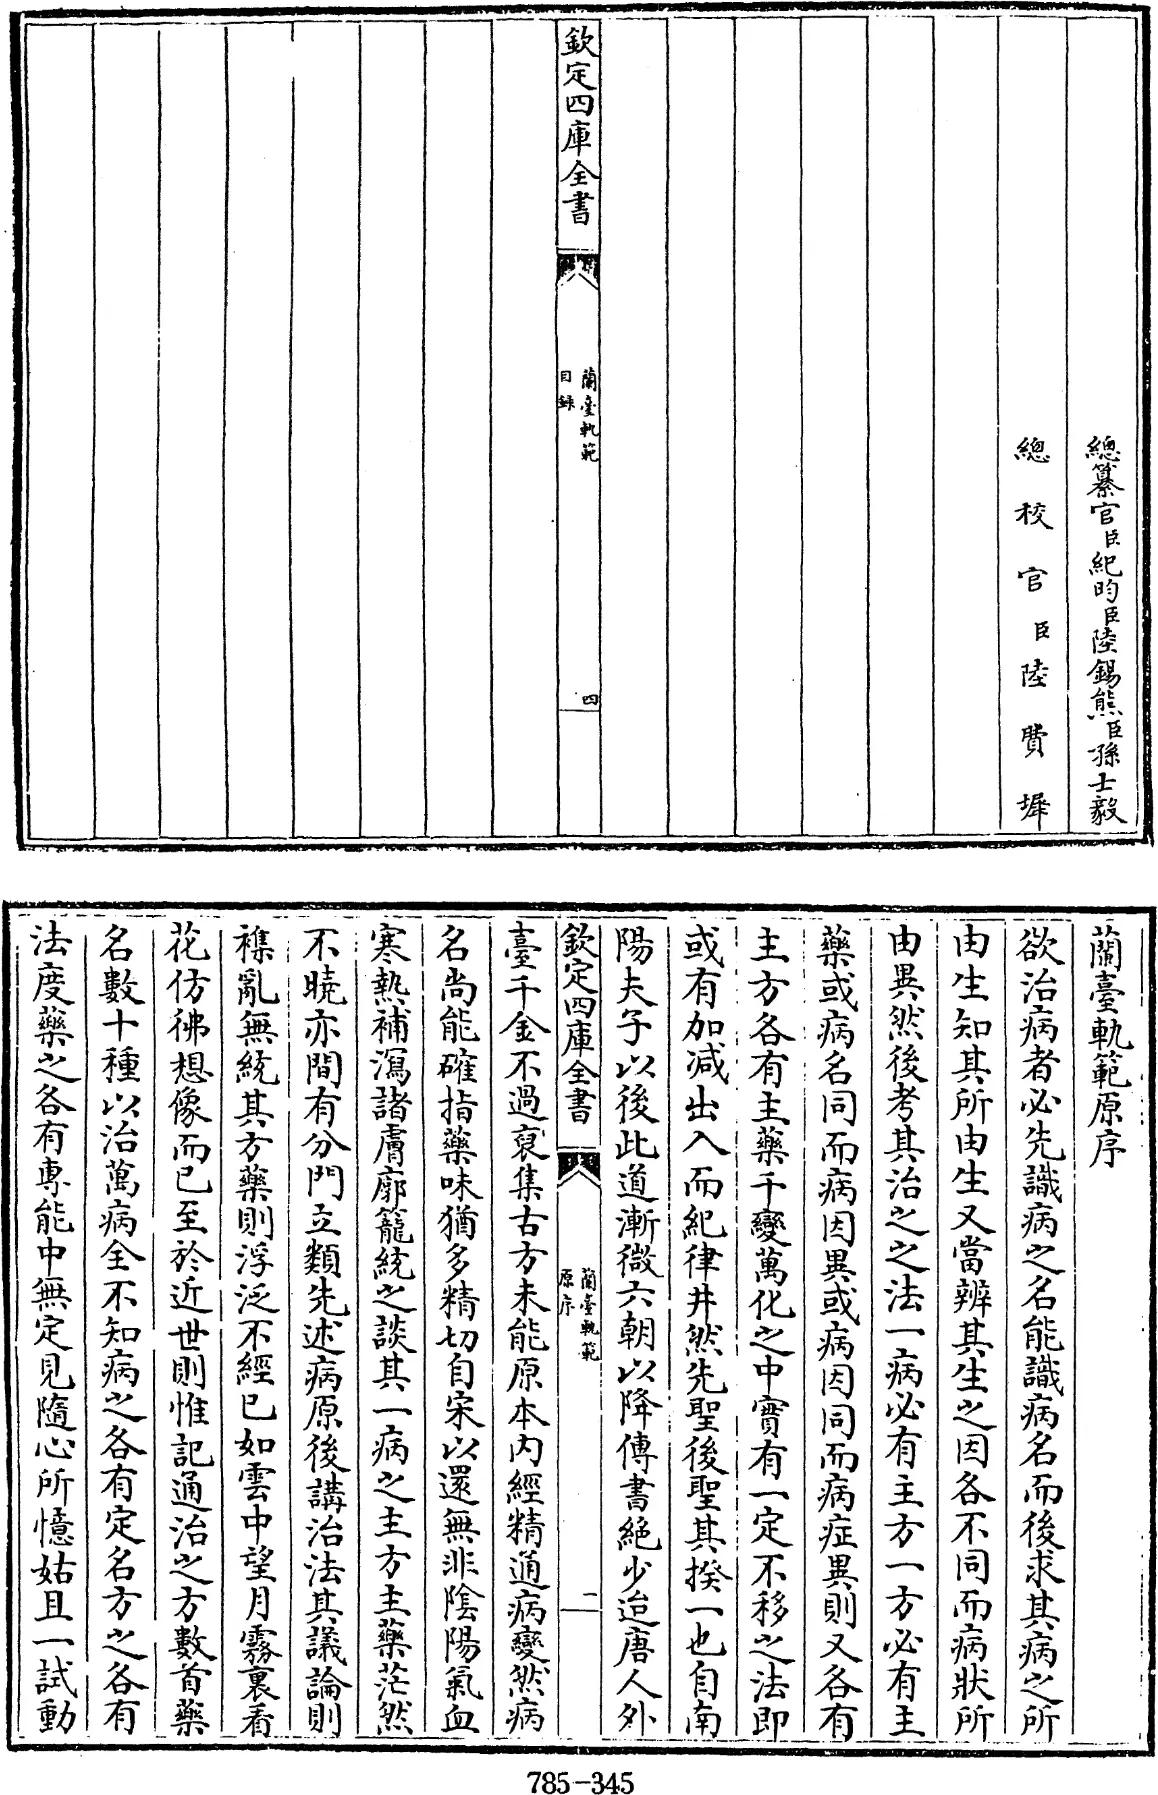 總纂官臣紀昀臣陸錫熊臣孫士毅
總校官臣陸費墀
欽定四庫全書
蘭臺軌範
目錄
四
蘭臺軌範原序
欲治病者必先識病之名能識病名而後求其病之所
由生知其所由生又當辨其生之因各不同而病狀所
由異然後考其治之之法一病必有主方一方必有主
藥或病名同而病因異或病因同而病症異則又各有
主方各有主藥千變萬化之中實有一定不移之法即
或有加减出入而紀律井然先聖後聖其揆一也自南
陽夫子以後此道漸微六朝以降傳書絕少迨唐人外
欽定四庫全書
蘭臺軌範
原序
一
臺千金不過裒集古方未能原本内經精通病變然病
名尚能確指藥味猶多精切自宋以還無非陰陽氣血
寒熱補瀉諸膚廓籠統之談其一病之主方主藥茫然
不曉亦間有分門立類先述病原後講治法其議論則
襍亂無統其方藥則浮泛不經已如雲中望月霧裏看
花仿彿想像而已至於近世則惟記通治之方數首藥
名數十種以治萬病全不知病之各有定名方之各有
法度藥之各有專能中無定見隨心所憶姑且一試動
785-345